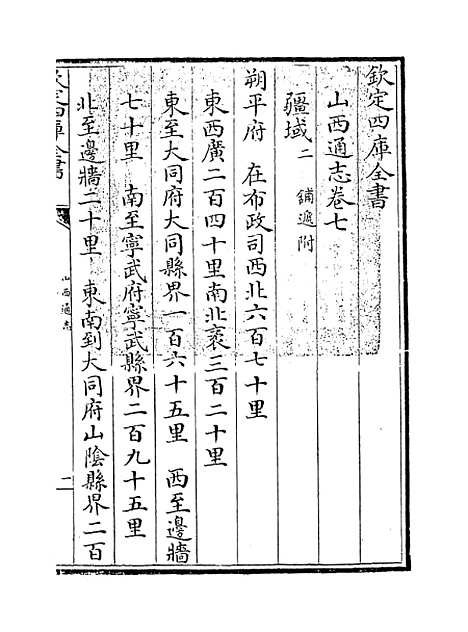 欽定四庫全書
山西通志卷七
疆域二 鋪遞附
朔平府 在布政司西北六百七十里
東西廣二百四十里南北袤三百二十里
東至大同府大同縣界一百六十五里 西至邊牆
七十里 南至寧武府寧武縣界二百九十五里
北至邊牆二十里 東南到大同府山陰縣界二百
欽定四庫全書
山西通志
二